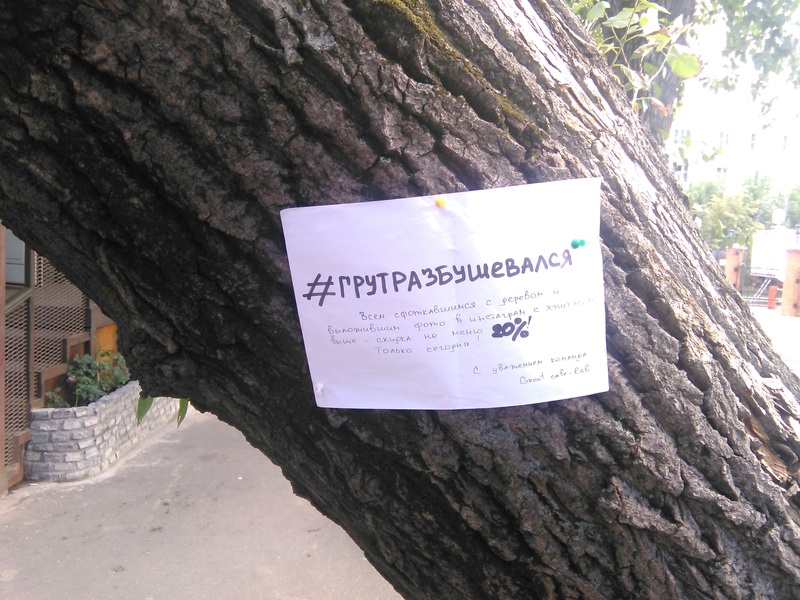 #ГРУТРАЗБУШЕВАЛСЯ
Всем сфоткавшимся с деревом и
выложившим фото в инстаграм с хэштегом
выше - скидка на меню 20%!
Только сегодня!
С уважением команда
Groot cafe-lab